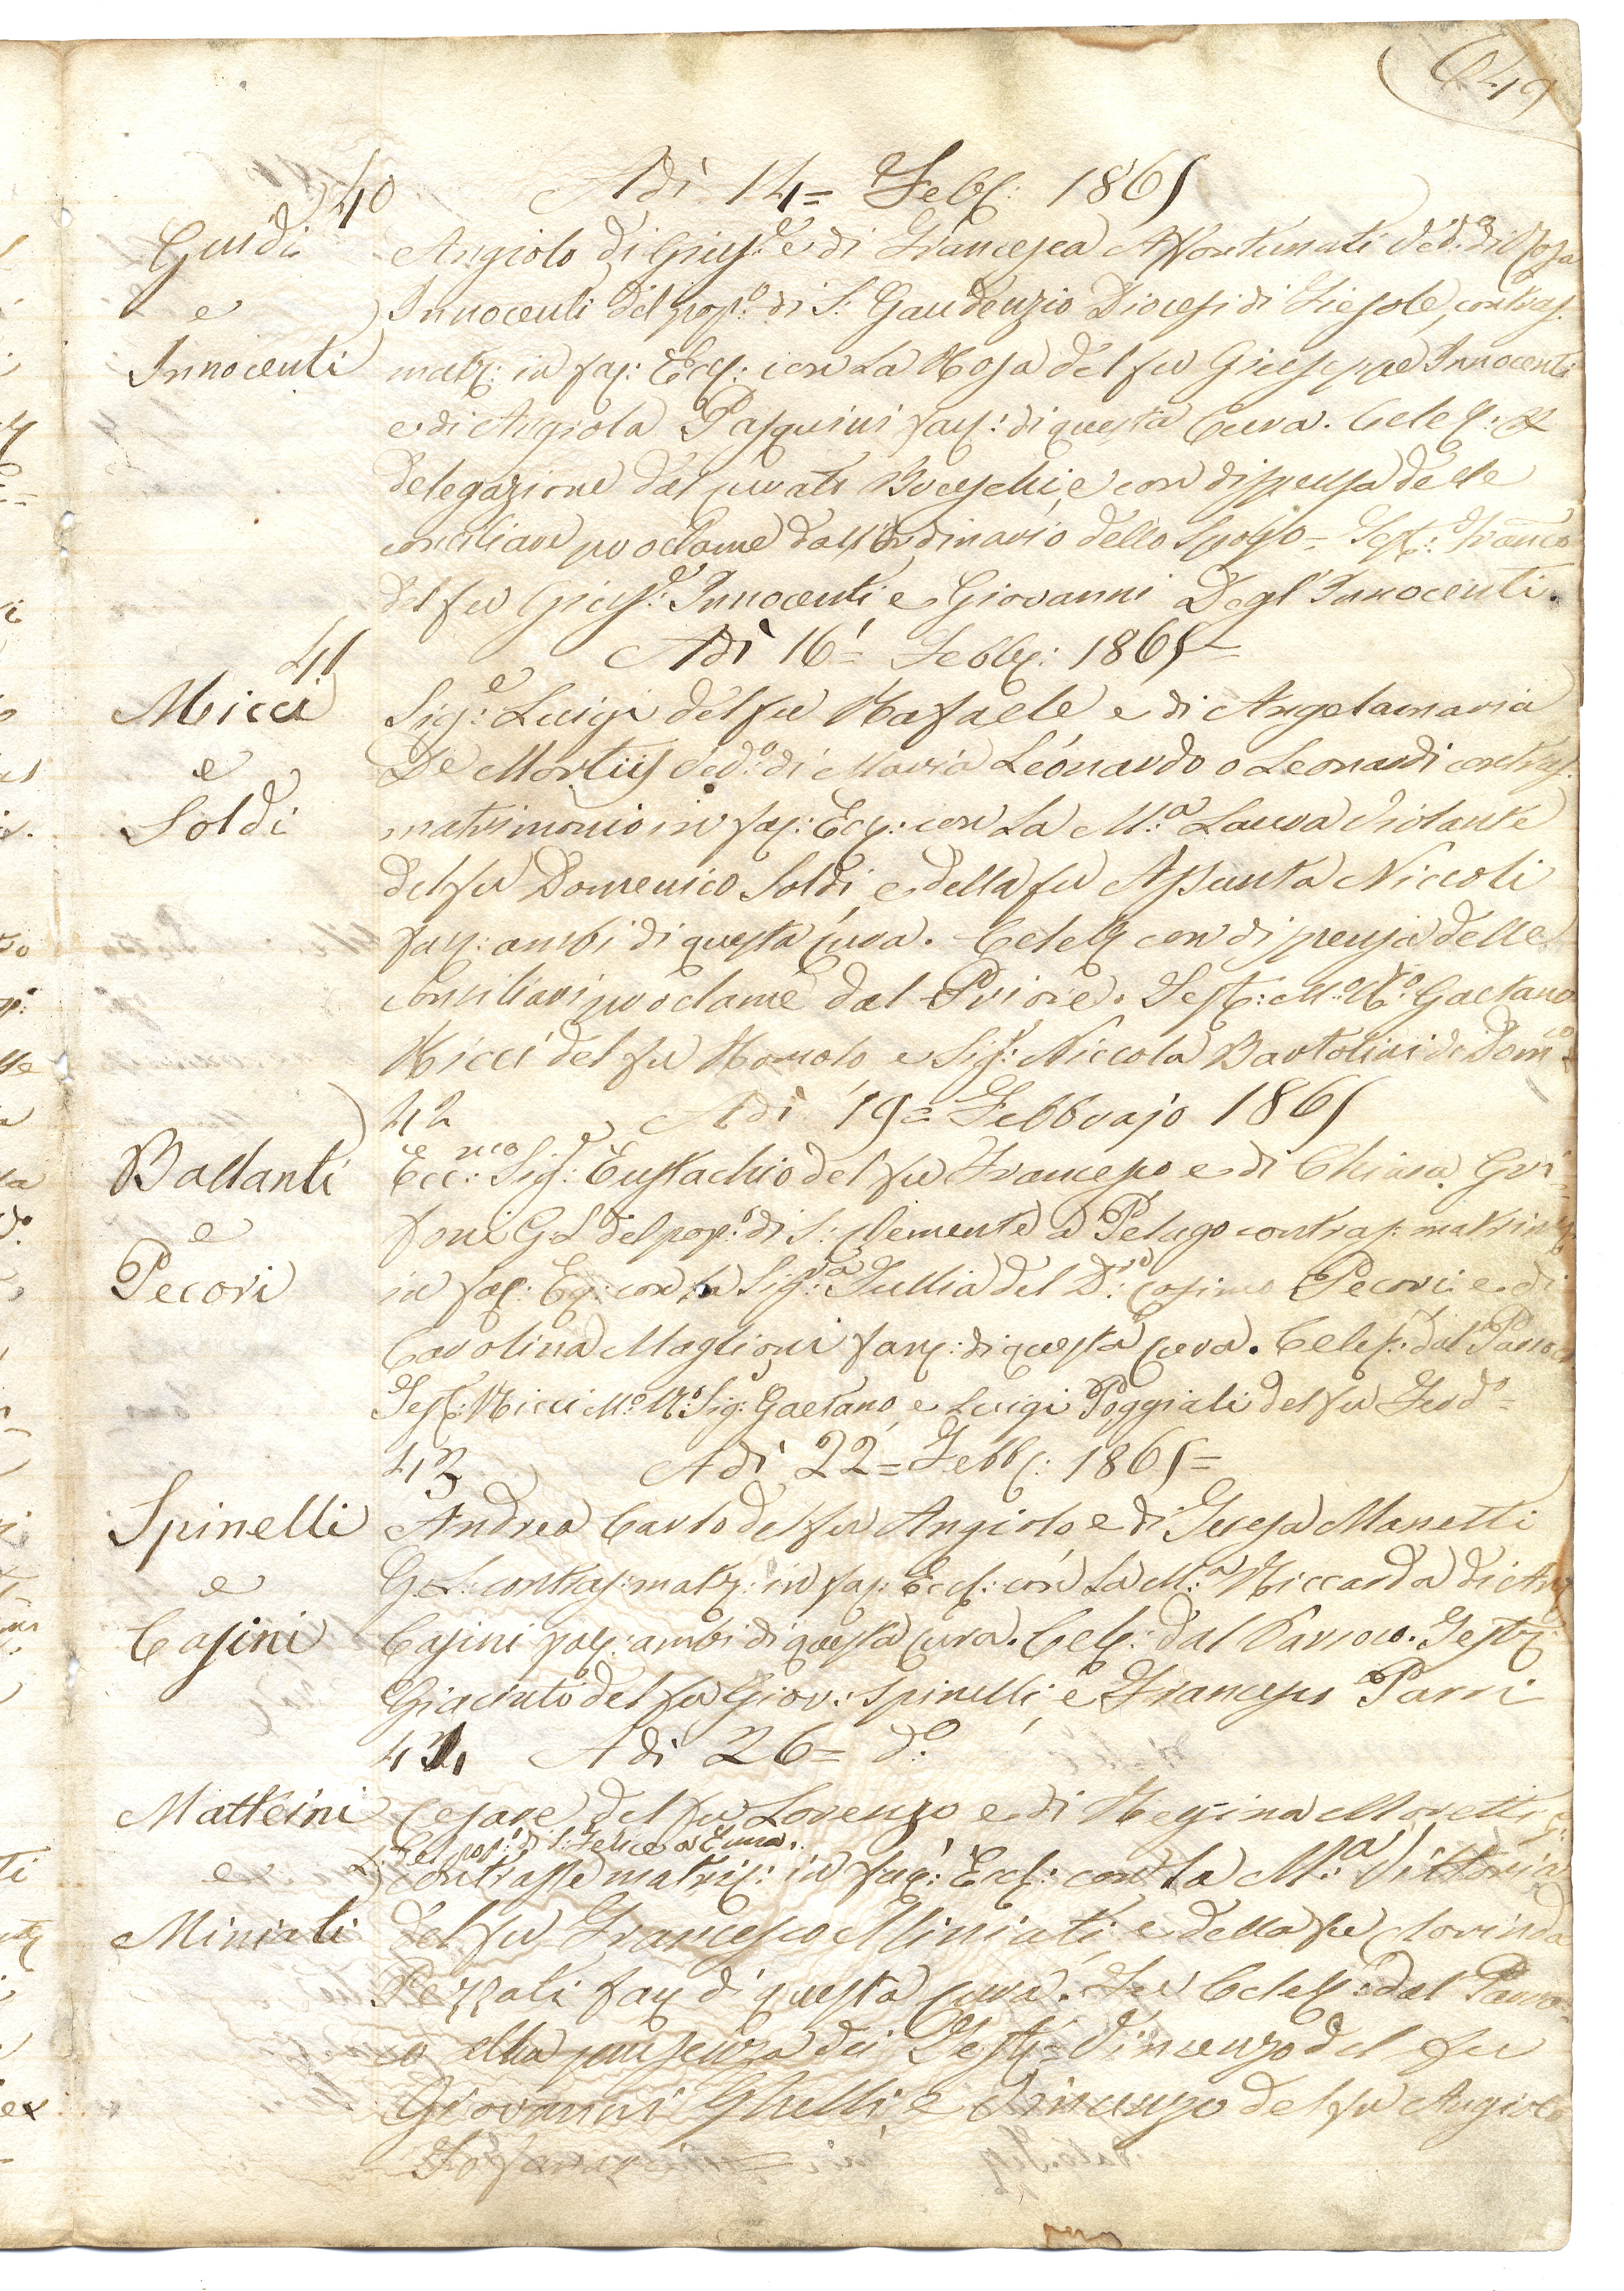 649
40 Adì 14= Febb: 1865
Guidi Angiolo di Gius:e e di Francesca Affortunati Ved:o di Rosa
e Innocenti del pop:o di S: Gaudenzio Diocesi di Fiesole, contras:
Innocenti matr: in fac: Eccl: con La Rosa del fu Giuseppe Innocenti
e di Angiola Pasquini fac: di questa Cura. Celeb: ex
delegazione dal curato Bveschi, e con dispensa delle
conciliari proclame dall'Ordinario dello Sposo = Test: Franco
del fu Gius:e Innocenti, e Giovanni Degl'Innocenti.
41 Adì 16= Febb: 1865=
Micci Sig:e Luigi del fu Rafaele e di Angelamaria
e De Mortiis Ved:o di Maria Leonardo o Leonardi contras:
Soldi matrimonio in fac: Eccl: con La M:a Laura Violante
del fu Domenico Soldi, e della fu Assunta Niccoli
fac: ambi di questa Cura. Celeb con dispensa delle
Conciliari proclame dal Priore. Test: M:o R:o Gaetano
Ricci del fu Romolo e Sig:r Niccola Bartolini di Dom:co
42 Adì 19= Febbrajo 1865
Ballanti Ecc:mo Sig:e Eustachio del fu Francesco e di Chiara Gri=
e foni G L del pop:o di S: Clemente a Pelago contras: matrim:
Pecori in fac: Ec: con la Sig:ra Tullia del D:re Cosimo Pecori e di
Carolina Maglioni fac: di questa Cura. Celeb: dal Parroco
Test: Ricci M:o R:o Sig: Gaetano, e Luigi Poggiali del fu Ferd:o=
43 Adì 22= Febb: 1865=
Spinelli Andrea Carlo del fu Angiolo, e di Teresa Manetti
e G. L: contras: matr: in fac: Eccl: con La M:a Riccarda di Ang
Casini Casini fac: ambi di questa Cura. Celeb: dal Parroco. Test:
Giacinto del fu Giov: Spinelli, e Francesco Parri
44 Adì 26= d:o
Matteini Cesare del fu Lorenzo e di Regina Moretti G:
L: del pop:o di S: Felice a Ema.
e Contrasse matrim: in fac: Eccl: con la M:a Vittoria
Miniati del fu Francesco Miniati e della fu Clorinda
Pezzati fac di questa Cura. Fu Celeb: dal Parro=
co alla presenza dei Test: Vincenzo del fu
Giovanni Ghelli, e Vincenzo del fu Angiolo